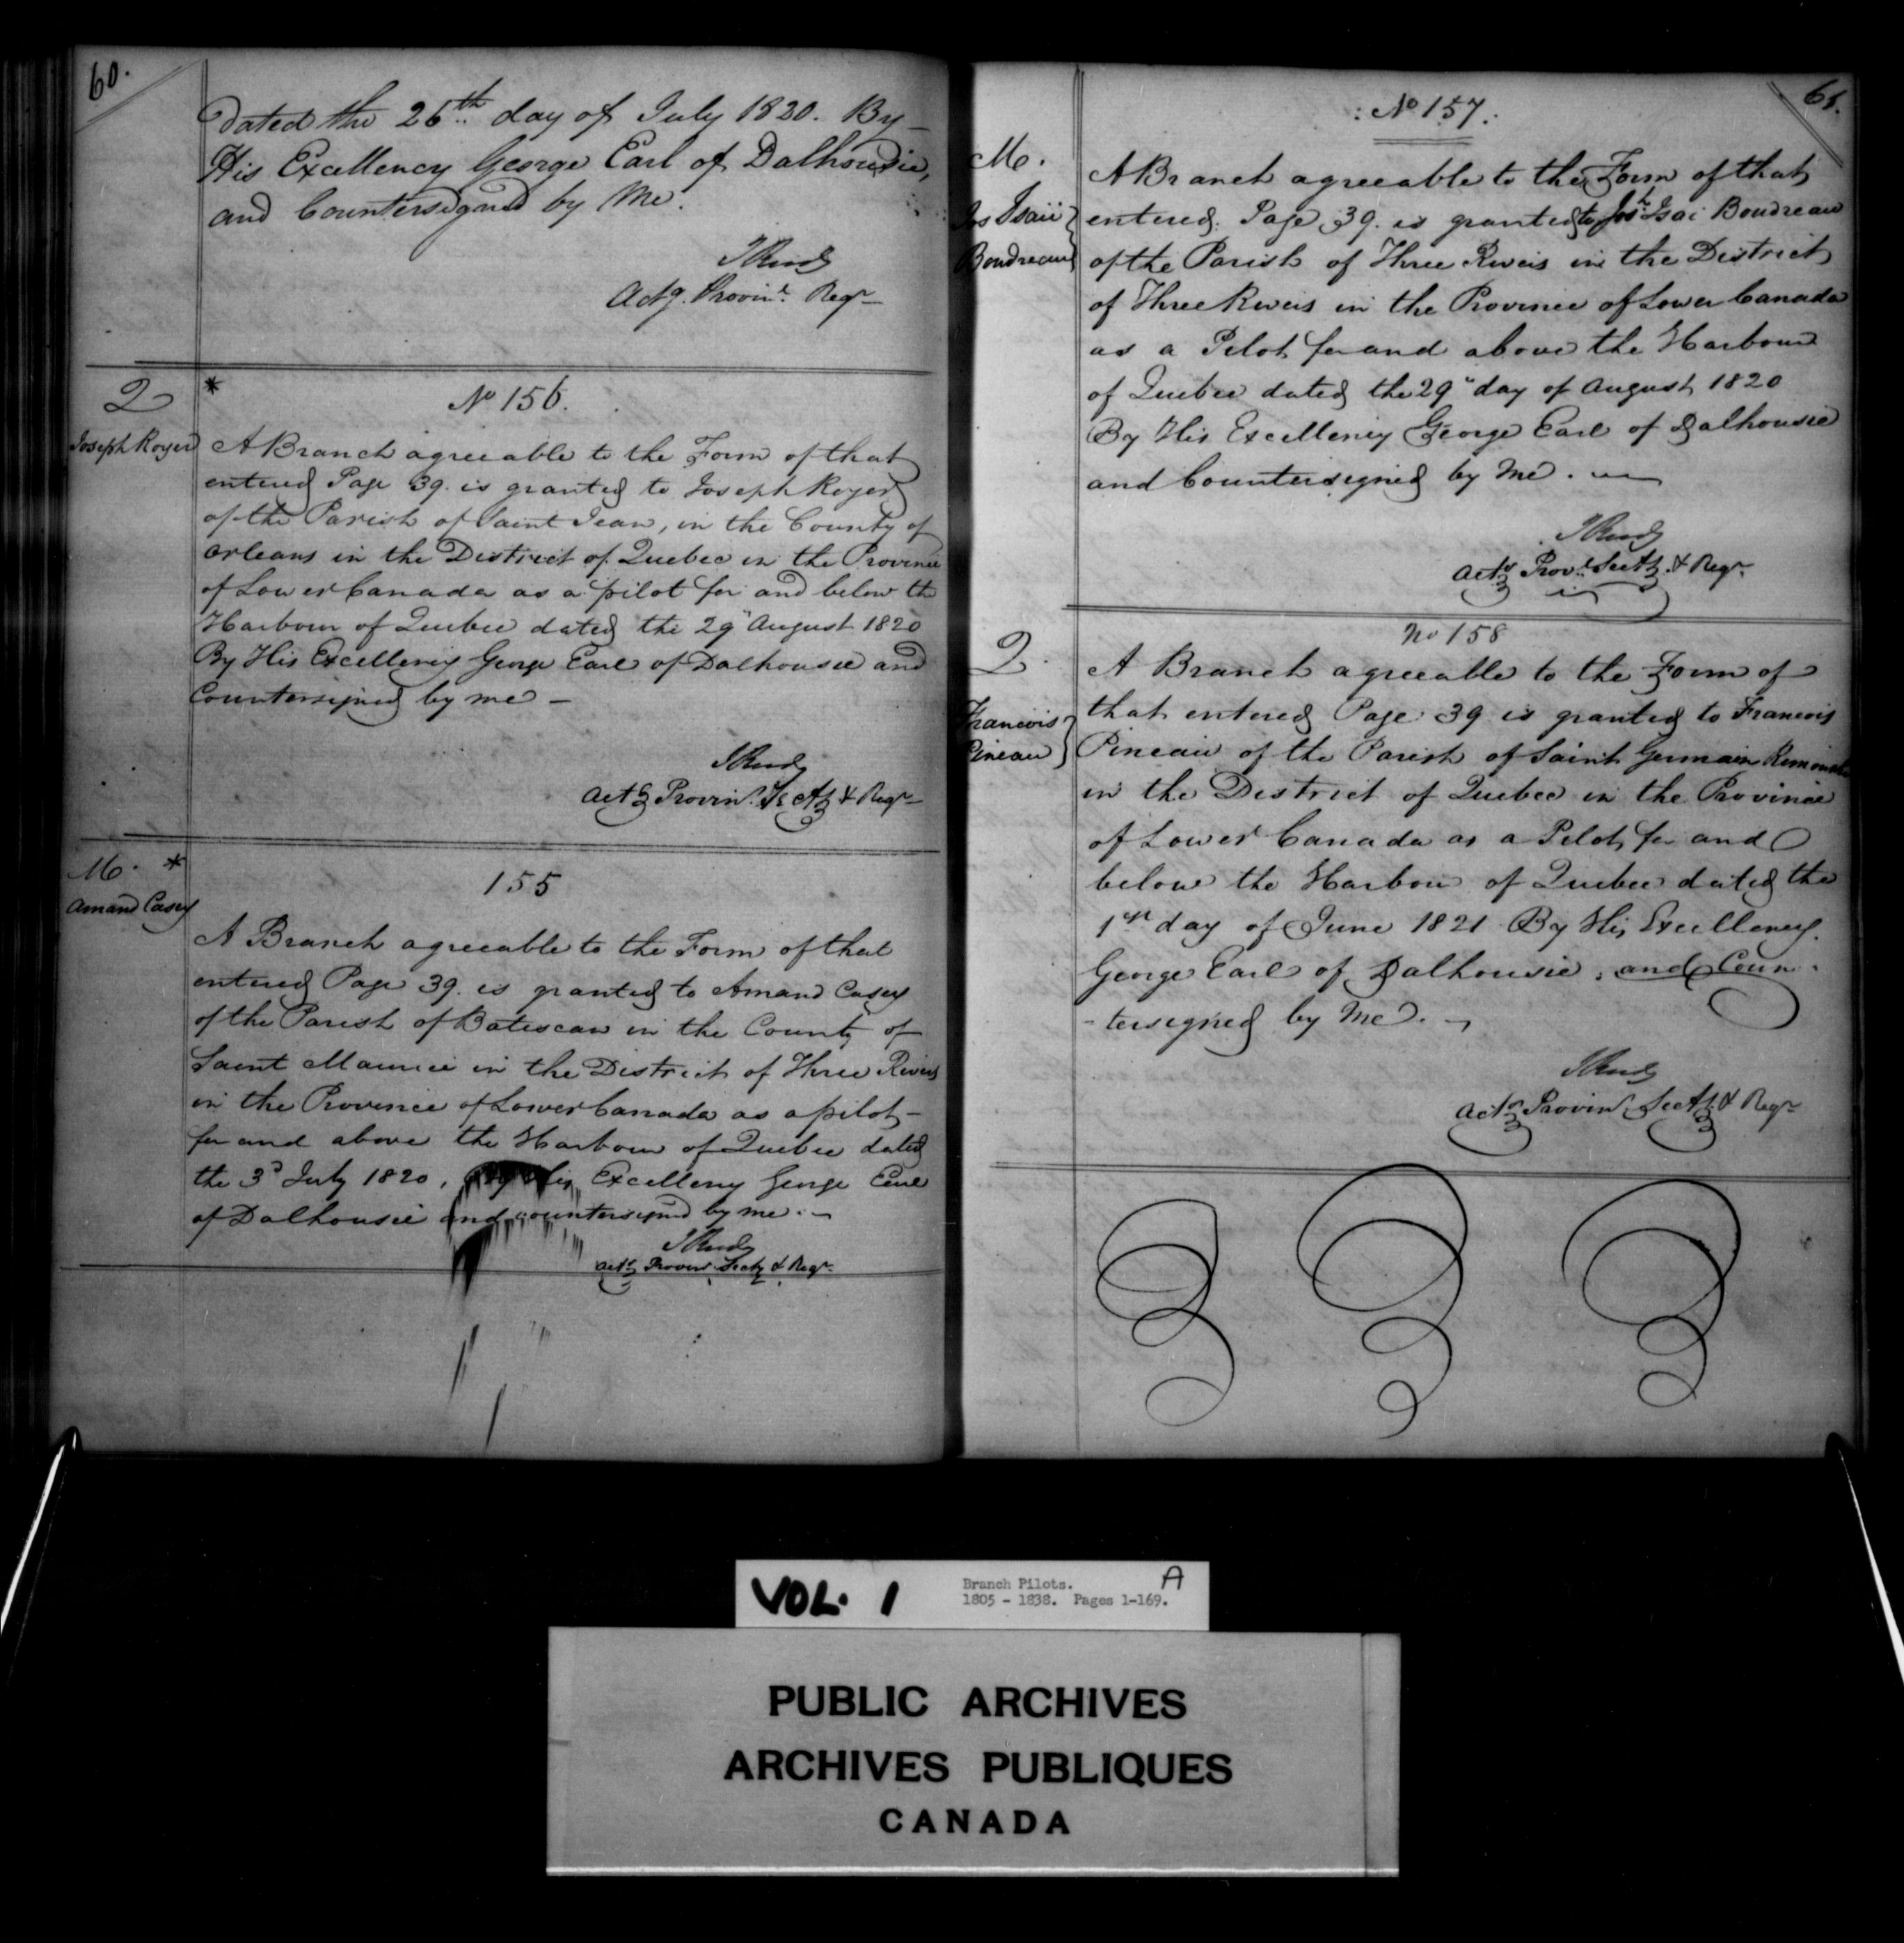 60.
Dated the 26th day of July 1820. By
His Excellency George Earl of Dalhousie,
and Countersigned by Me.
JReady
Actg. Provinl. Regr
2 *
No 156.
Joseph Royer
A Branch agreeable to the Form of that
entered Page 39. is granted to Joseph Royer
of the Parish of Saint Jean, in the County of
Orleans in the District of Quebec in the Province
of Lower Canada as a pilot for and below the
Harbour of Quebec dated the 29" August 1820
By His Excellency George Earl of Dalhousie and
Countersigned by me —
JReady
Actg Provinl. SecAy & Regr
M. *
155
Amand Casey
A Branch agreeable to the Form of that
entered Page 39. is granted to Amand Casey
of the Parish of Batiscan in the County of
Saint Maurice in the District of Three Rivers
in the Province of Lower Canada as a pilot –
for and above the Harbour of Quebec dated
the 3d July 1820, By His Excellency George Earl
of Dalhousie and countersigned by me. —
JReady
Actg Provinl Secty & Regr.
: No 157. :
M.
Jos Isaii
Boudreau
A Branch agreeable to the Form of that
entered Page 39. is granted to Josh Isai Boudreau
of the Parish of Three Rivers in the District
of Three Rivers in the Province of Lower Canada
as a Pilot for and above the Harbour
of Quebec dated the 29" day of August 1820
By His Excellency George Earl of Dalhousie
and Countersigned by Me. —
JReady
Actg Provl. SecAy. & Regr.
No 158
2.
Francois
Pineau
A Branch agreeable to the Form of
that entered Page 39 is granted to Francois
Pineau of the Parish of Saint Germain
in the District of Quebec in the Province
of Lower Canada as a Pilot for and
below the Harbour of Quebec dated the
1st day of June 1821 By His Excellency
George Earl of Dalhousie, and Coun-
-tersigned by Me. —
JReady
Actg Provinl SecAy. & Regr
VOL. 1
Branch Pilots. A
1805 - 1838. Pages 1-169.
PUBLIC ARCHIVES
ARCHIVES PUBLIQUES
CANADA